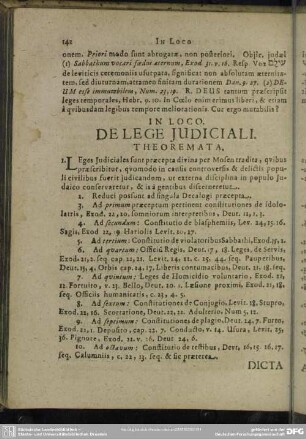 142 IN LOCO
onem. Priori modo sunt abrogatæ, non posteriori. Objic. judæi
(1) Sabbathum vocari fœdus æternum, Exod. 31. v. 16. Resp. Vox עולם
de leviticis ceremoniis usurpata, significat non absolutam æternita-
tem, sed diuturnam, atramen finiendam duratione Dan. 9. 27. (2) DE-
UM esse immutabilem, Num. 23, 19. R. DEUS tantum præscripsit
leges temporales, Hebr. 9, 10. In Cœlo enim erimus liberi, & etiam
à quibusdam legibus tempore meliorationis. Cur ergo mutabilis?
IN LOCO,
DE LEGE JUDICIALI.
THEOREMATA,
LEges Judiciales sunt præcepta divina per Mosen tradita, quibus
præscribitur, quomodo in causis controversis & delictis popu-
li civilibus fuerit judicandum, ut externa disciplina in populo Ju-
daico conservaretur, & is à gentibus discerneretur.
1. Reduci possunt ad singula Decalogi præcepta.
3. Ad primum præceptum pertinent constitutiones de idolo-
latria, Exod. 22, 20, somniorum interpretibus, Deut. 12, 2, 3.
4. Ad secundum: Constitutiones de blasphemiis, Lev. 24, 15. 16.
Sagis, Exod. 22, 19. Hariolis Levit. 20. 27.
5. Ad tertium: Constitutio de violatoribus Sabbathi, Exod. 31, 2.
6. Ad quartum: Officia Regis, Deut. 17, 18. Leges, de Servis,
Exod. 21, 2. seq. cap. 21, 21. Levit. 24, 22. c. 25. 44. seq. Pauperibus,
Deut. 15, 4. Orbis cap. 24. 17. Liberis contumacibus, Deut. 21, 18. seq.
7. Ad quintum: Leges de Homicidio voluntario, Exod. 21,
12. Fortuito, v. 13. Bello, Deut. 20. 1. Læsione proximi, Exod. 21, 18.
seq. Officiis humanitatis, c. 23, 4. 5.
8. Ad sextum: Constitutiones de Conjugio, Levit. 18. Stupro,
Exod. 22, 16, Scortatione, Deut. 22, 21. Adulterio. Num. 5. 12.
9. Ad septimum: Constitutiones de plagio, Deut. 24, 7. Furto,
Exod. 22, 1. Deposito, cap. 22. 7. Conducto, v. 14. Usura, Levit. 25,
36. Pignore, Exod. 22. v. 26. Deut. 24, 6.
10. Ad octavum: Constitutio de testibus, Deut. 19, 15. 16. 17.
seq. Calumniis, c. 22, 13. seq. & sic præterea.
DICTA